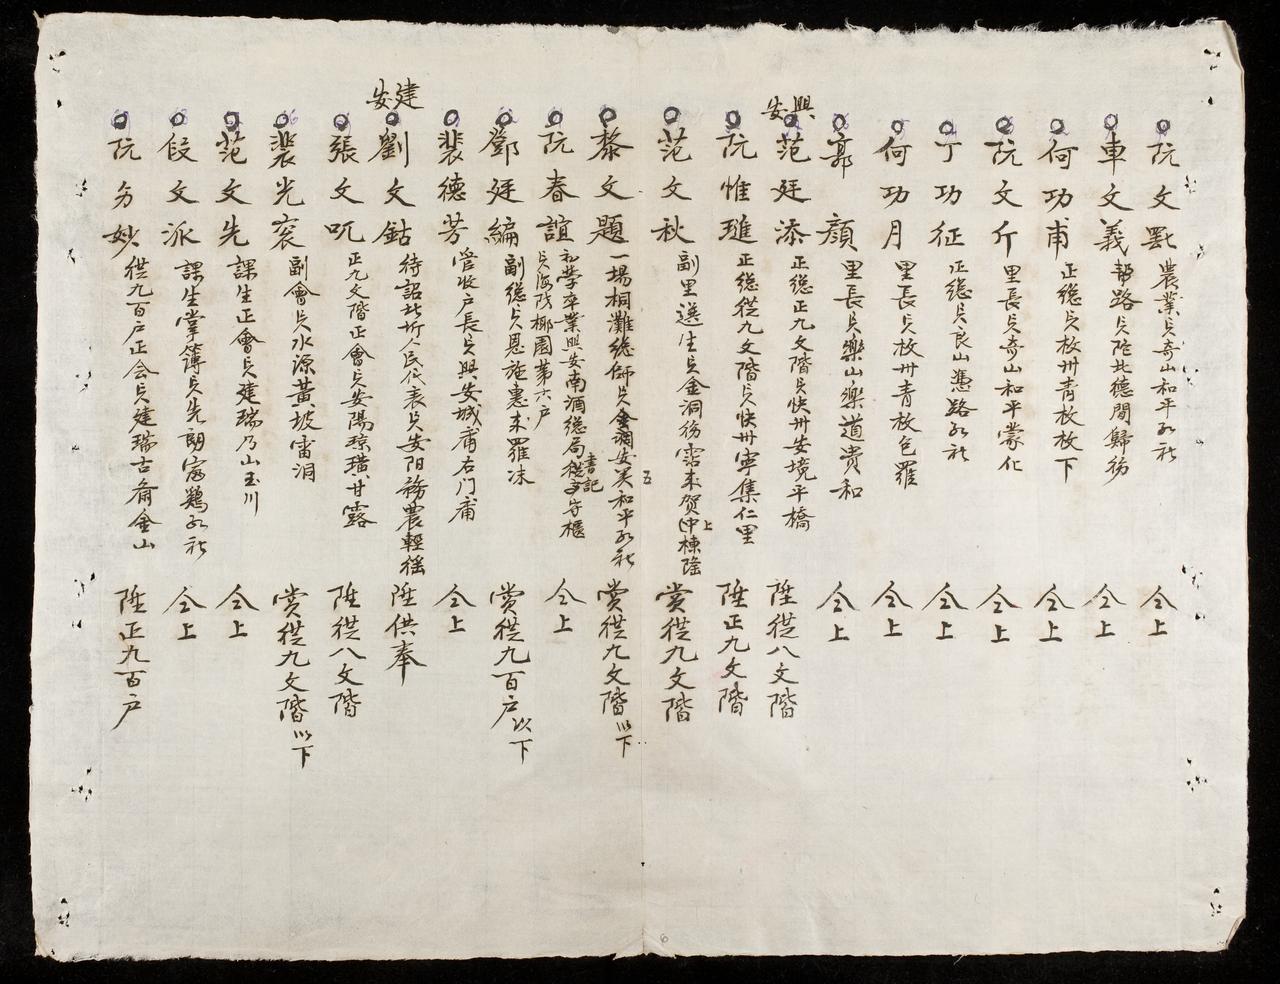 阮文 農業員奇山和平
仝上
車文義 員陀北德閒歸
仝上
何功甫 正總員枚州青枚枚下
仝上
阮文斤 里長員奇山和平蒙化
仝上
丁功征 正總員良山憑路
仝上
何功月 里長員枚州青枚包羅
仝上
郭顏 里長員樂山樂道貴和
仝上
興安
范廷添 正總正九文階員快州安境平橋
陞從八文階
阮惟璡 正總從九文階員快州寧集仁里
陞正九文階
范文秋 副里選生員金洞
賞從九文階
五
黎文題 一場桐灘總師員金洞安美和平
賞從九文階以下
阮春誼 初學卒業興安南酒總局從守櫃
書記
員海陽椰園第六户
仝上
鄧廷編 副總員恩施惠來羅
賞從九百户以下
裴德芳 管收户長員興安城庯右门庯
仝上
建安
劉文鈷 待詔北圻人民代表員安阳務農輕徭
陞供奉
張文 正九文階正會員安陽琼璜甘露
陞從八文階
裴光衮 副會員水源黃坡雷洞
賞從九文階以下
范文先 課生正會員建瑞乃山玉川
仝上
段文派 課生掌簿員先朗富鷄
仝上
阮妙 從九百户正会員建瑞古齋金山
陞正九百户
6